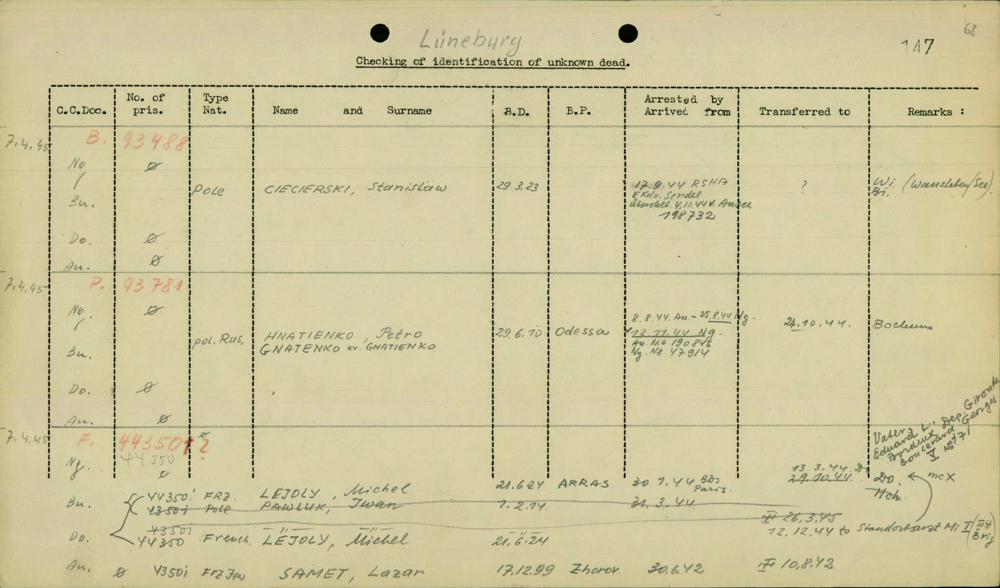 68
Lüneburg
147
Checking of identification of unknown dead.
C.C.Doc. No. of pris. Type Nat. Name and Surname B.D. B.P. Arrested by Arrived from Transferred to Remarks :
7.4.45 B. 93488
Ng ø
Bu. Pole CIECIERSKI, Stanislaw 29.3.23 17.9.44 RSHA ? Wi. (Wansleben/See)
E Kdo. Sendel Bi.
4.11.44 v. Ausch
198732
Do. ø
Au. ø
7.4.45 P. 93781
Ng. ø
Bu. pol. Rus. HNATIENKO, Petro 29.6.10 Odessa 8.8.44 Au-25.8.44 Ng. 24.10.44. Bochum
GNATENKO or GNATIENKO 12.11.44 Ng.
Au. No 190846
Ng. No 47914
Do. ø
Au. ø
7.4.45 F. 44350 ?
Ng. 44350
ø
Vater:
Eduard L. Dep. Gironde
Bordeux
Boulevard Georges
V No 171
Bu. 44350 FRZ. LEJOLY, Michel 21.6.24 ARRAS 30.1.44 BDS Paris. 13.3.44. D. 29.10.44 Do. mcx
Hch.
43501 Pole PAWLUK, Iwan 1.2.14 31.3.44 26.3.45
43501
Do. 44350 French LEJOLY, Michel 21.6.24 12.12.44 to Standortsarzt Mi I
Au. ø 43501 FRZ Jew SAMET, Lazar 17.12.99 Zhorov 30.6.42 10.8.42